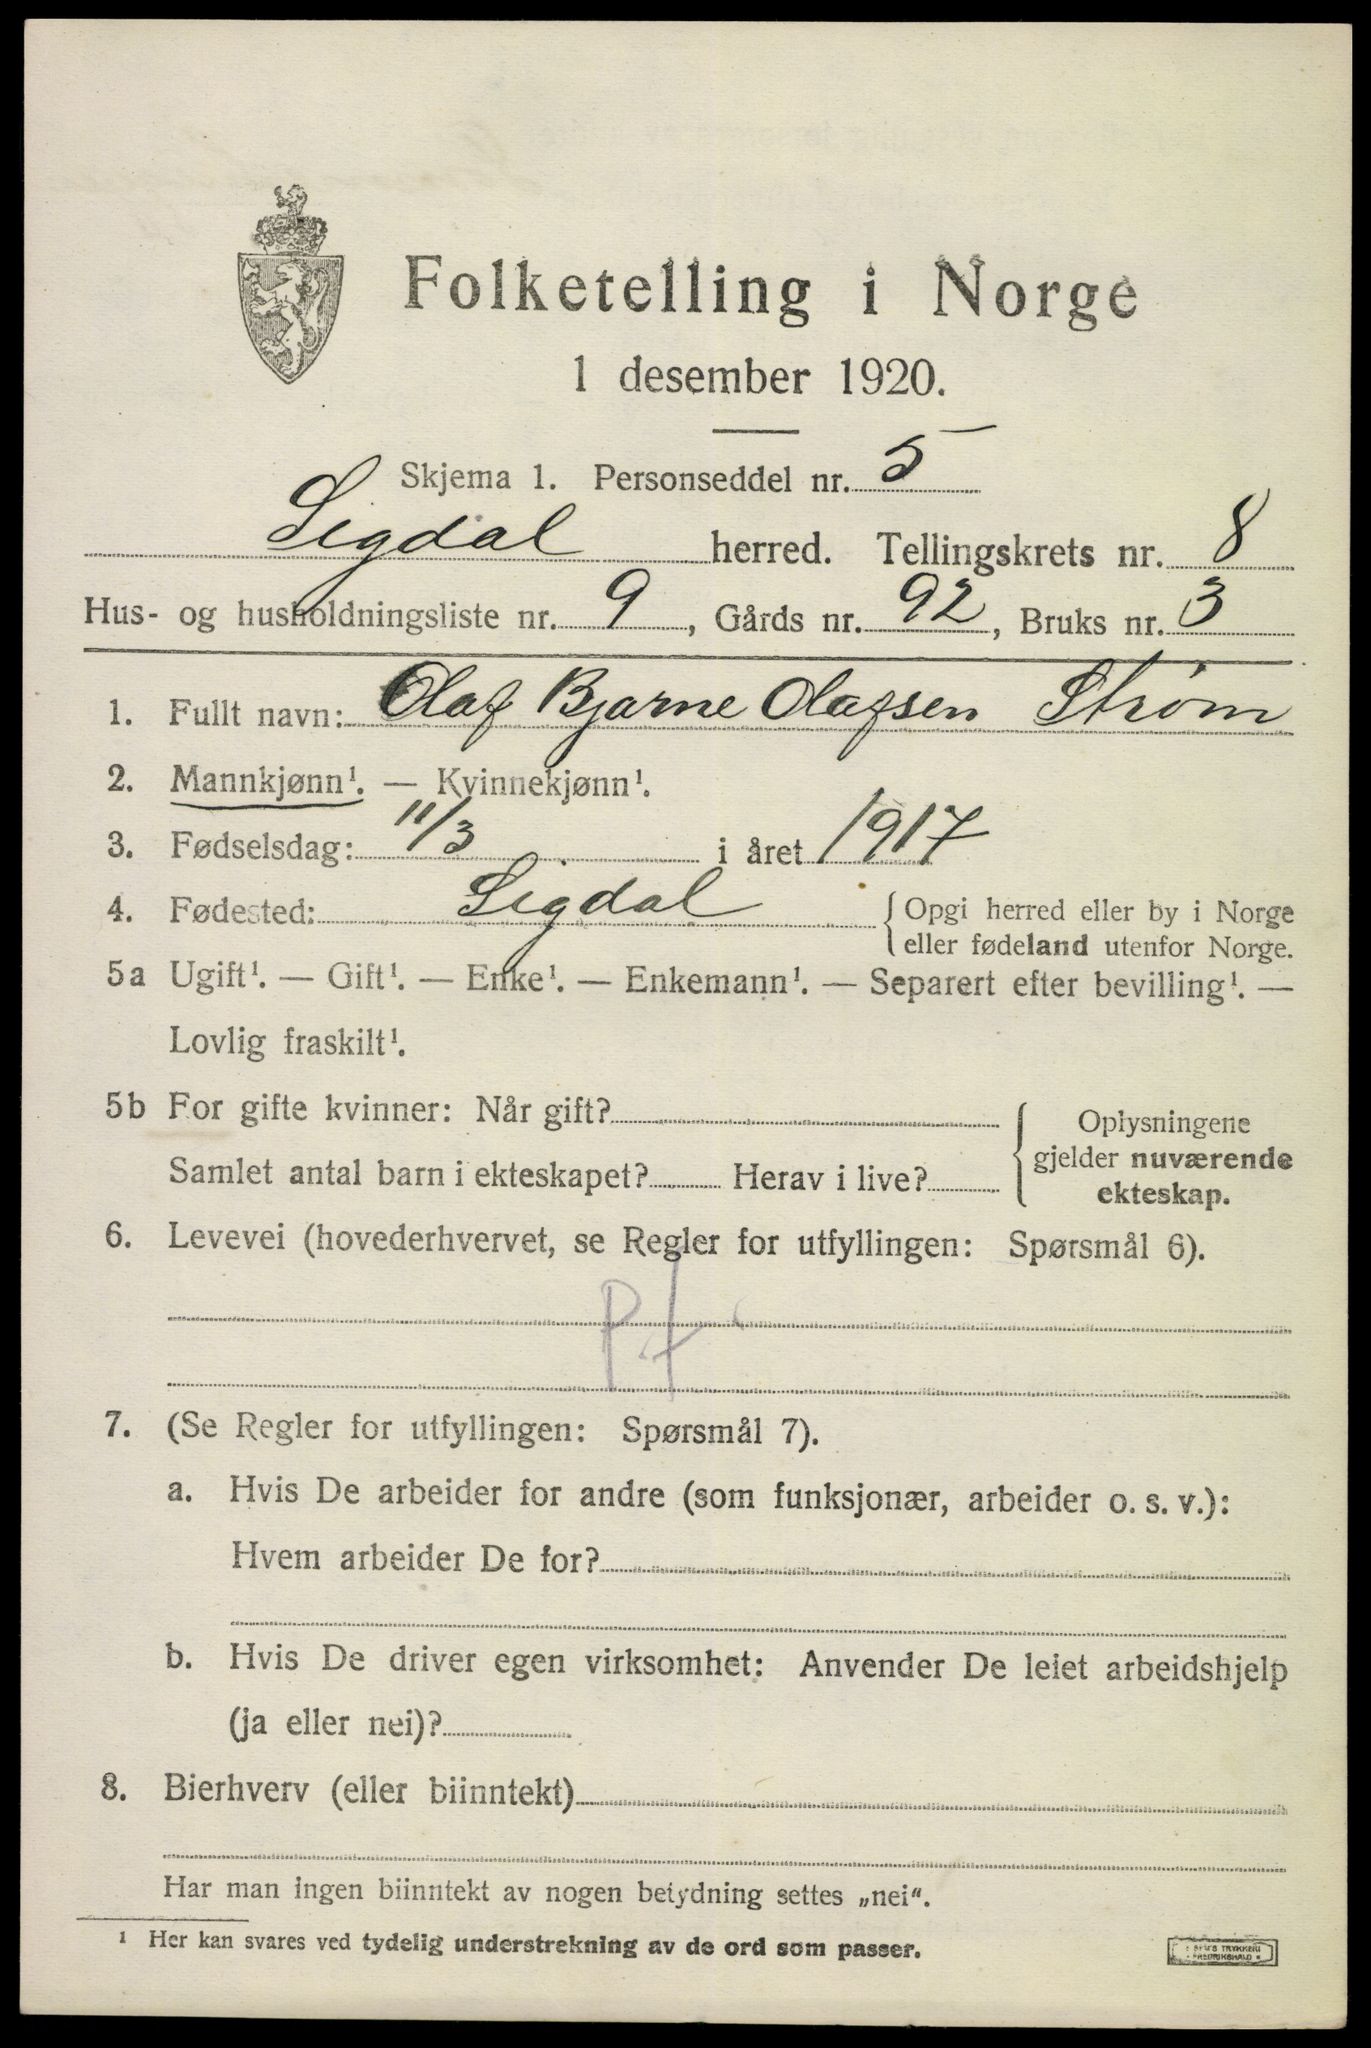 Folketelling i Norge
1 desember 1920.
Skjema 1. Personseddel nr. 5
Sigdal herred. Tellingskrets nr. 8
Hus- og husholdningsliste nr. 9, Gårds nr. 92, Bruks nr. 3
1. Fullt navn: Olaf Bjarne Olafsen Strøm
2. Mannkjønn¹. — Kvinnekjønn¹.
3. Fødselsdag: 11/3 i året 1917
4. Fødested: Sigdal { Opgi herred eller by i Norge
eller fødeland utenfor Norge.
5a Ugift¹. — Gift¹. — Enke¹. — Enkemann¹. — Separert efter bevilling¹. —
Lovlig fraskilt¹.
5b For gifte kvinner: Når gift?
Samlet antal barn i ekteskapet? Herav i live?
{ Oplysningene
gjelder nuværende
ekteskap.
6. Levevei (hovederhvervet, se Regler for utfyllingen: Spørsmål 6).
P.f
7. (Se Regler for utfyllingen: Spørsmål 7).
a. Hvis De arbeider for andre (som funksjonær, arbeider o. s. v.):
Hvem arbeider De for?
b. Hvis De driver egen virksomhet: Anvender De leiet arbeidshjelp
(ja eller nei)?
8. Bierhverv (eller biinntekt)
Har man ingen biinntekt av nogen betydning settes „nei“.
¹ Her kan svares ved tydelig understrekning av de ord som passer.
TRYKKERI
FREDRIKSHALD